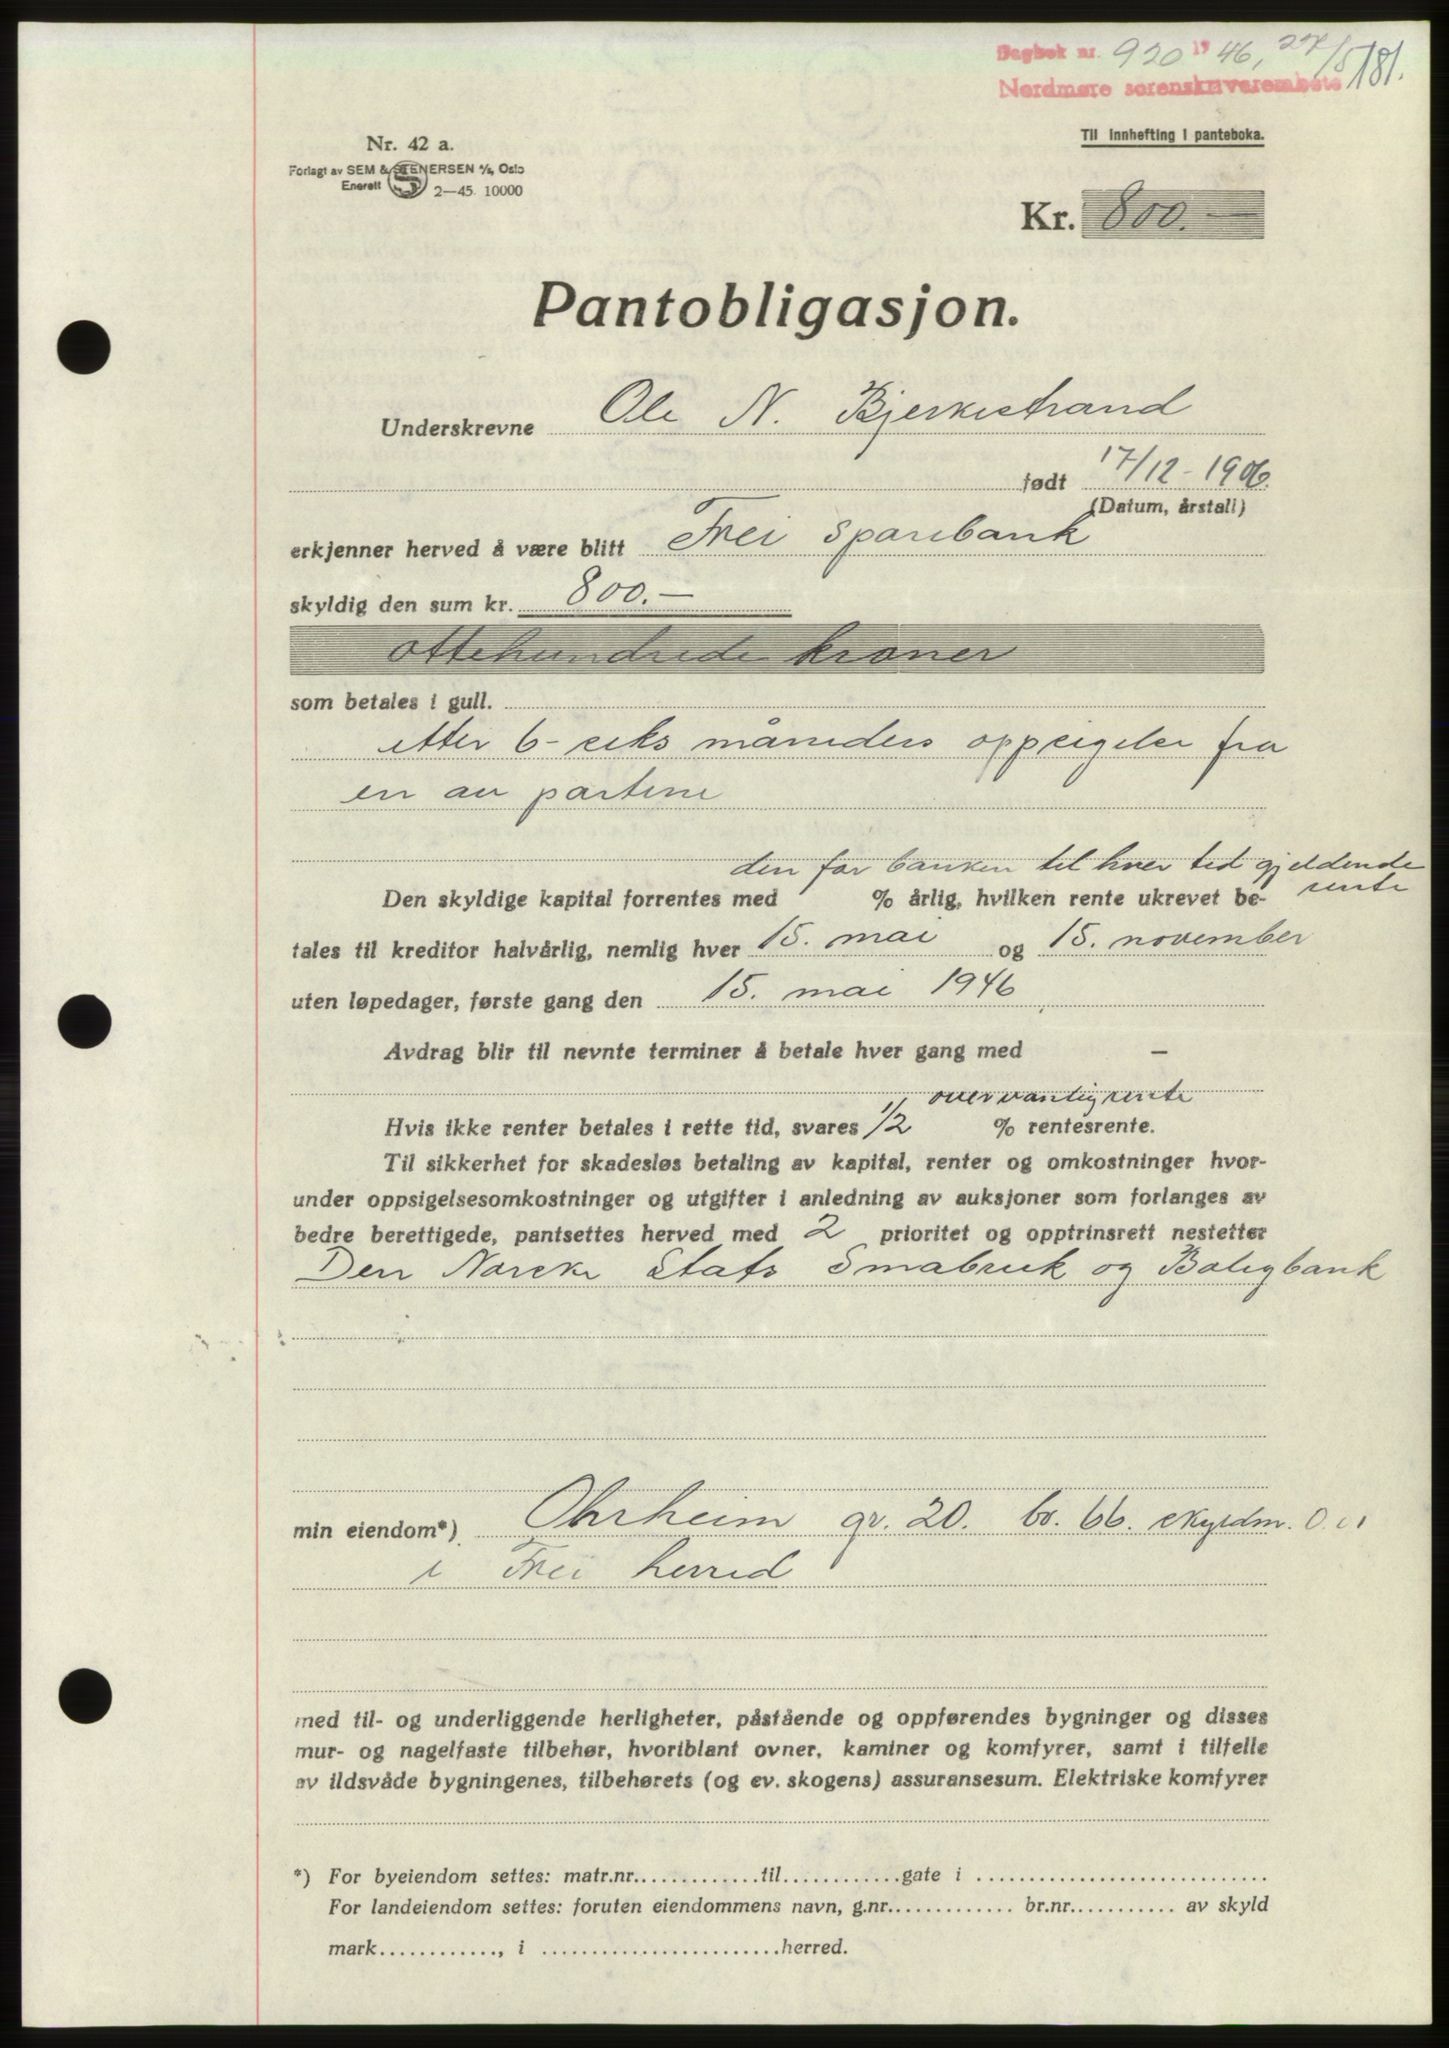 Dagbok nr. 920 19 46, 27/5 181.
Nordmøre sorenskriverembete
Til innhefting i panteboka.
Nr. 42 a.
Forlagt av SEM & STENERSEN A/S, Oslo
Enerett 2—45. 10000
Kr. 800.—
Pantobligasjon.
Underskrevne Ole N. Bjerkestrand
født 17/12 - 1906.
(Datum, årstall)
erkjenner herved å være blitt Frei Sparebank
skyldig den sum kr. 800.—
ottehundrede kroner
som betales i gull.
etter 6- seks måneders oppsigelse fra
en av partene
den for banken til hver tid gjeldende
rente
Den skyldige kapital forrentes med % årlig, hvilken rente ukrevet be-
tales til kreditor halvårlig, nemlig hver 15. mai og 15. november
uten løpedager, første gang den 15. mai 1946
Avdrag blir til nevnte terminer å betale hver gang med —
over vanlig rente
Hvis ikke renter betales i rette tid, svares 1/2 % rentesrente.
Til sikkerhet for skadesløs betaling av kapital, renter og omkostninger hvor-
under oppsigelsesomkostninger og utgifter i anledning av auksjoner som forlanges av
bedre berettigede, pantsettes herved med 2 prioritet og opptrinsrett nestetter
Den Norske Stats Småbruk og Boligbank
min eiendom*) Ohrheim gr. 20. br. 66. skyldm.
i Frei herred
med til- og underliggende herligheter, påstående og oppførendes bygninger og disses
mur- og nagelfaste tilbehør, hvoriblant ovner, kaminer og komfyrer, samt i tilfelle
av ildsvåde bygningenes, tilbehørets (og ev. skogens) assuransesum. Elektriske komfyrer
*) For byeiendom settes: matr.nr..............til.............gate i ..............................
For landeiendom settes: foruten eiendommens navn, g.nr.............. br.nr........... av skyld
mark............., i .........................herred.